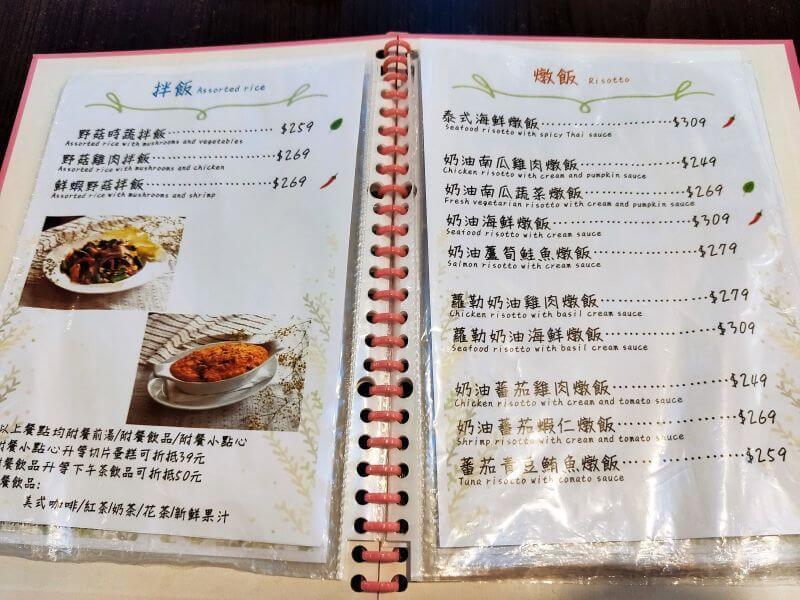 拌飯 Assorted rice
野菇時蔬拌飯 $259
Assorted rice with mushrooms and vegetables
野菇雞肉拌飯 $269
Assorted rice with mushrooms and chicken
鮮蝦野菇拌飯 $269
Assorted rice with mushrooms and shrimp
以上餐點均附餐前湯/附餐飲品/附餐小點心
附餐小點心升等切片蛋糕可折抵39元
附餐飲品升等下午茶飲品可折抵50元
餐飲品:
美式咖啡/紅茶/奶茶/花茶/新鮮果汁
燉飯 Risotto
泰式海鮮燉飯 $309
Seafood risotto with spicy Thai sauce
奶油南瓜雞肉燉飯 $249
Chicken risotto with cream and pumpkin sauce
奶油南瓜蔬菜燉飯 $269
Fresh vegetarian risotto with cream and pumpkin sauce
奶油海鮮燉飯 $309
Seafood risotto with cream sauce
奶油蘆筍鮭魚燉飯 $279
Salmon risotto with cream sauce
蘿勒奶油雞肉燉飯 $279
Chicken risotto with basil cream sauce
蘿勒奶油海鮮燉飯 $309
Seafood risotto with basil cream sauce
奶油蕃茄雞肉燉飯 $249
Chicken risotto with cream and tomato sauce
奶油蕃茄蝦仁燉飯 $269
Shrimp risotto with cream and tomato sauce
蕃茄青豆鮪魚燉飯 $259
Tuna risotto with tomato sauce